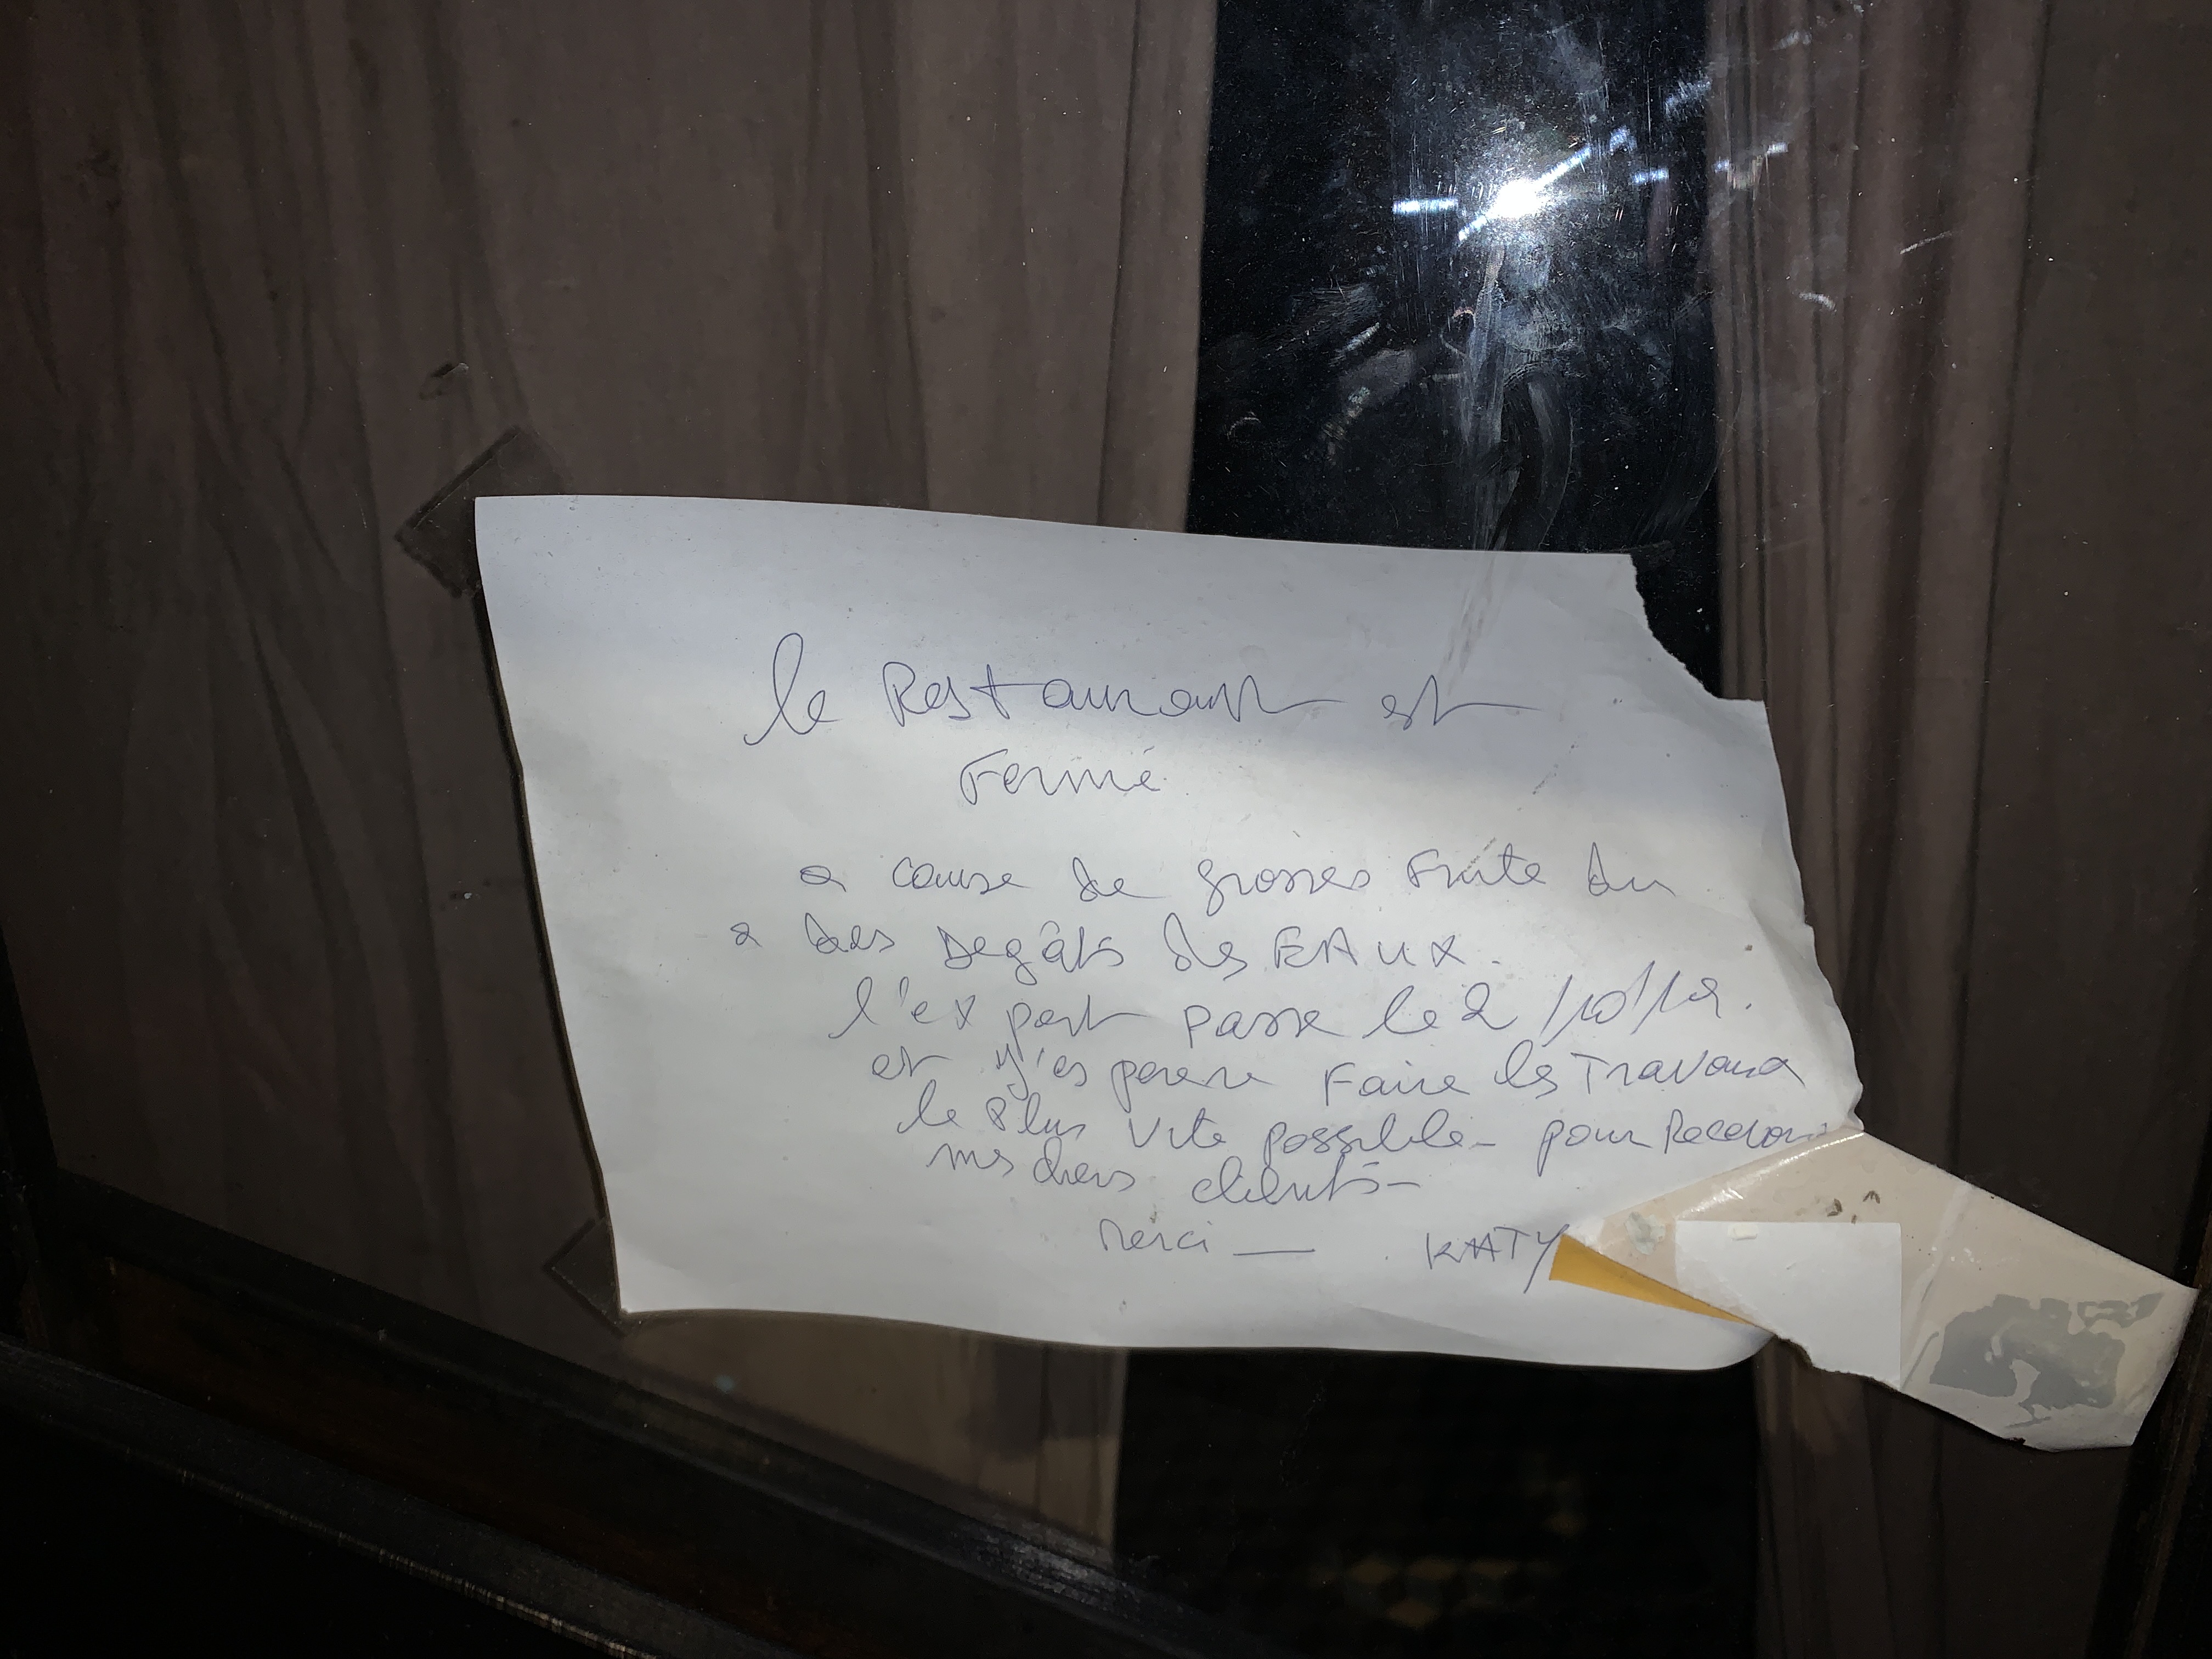 le Restaurant est
Fermé
a cause de grosses Fuite du
a des Degâts des EAUX.
l'expert passe le 2
et j'espere Faire les Travaux
le Plus Vite possible - pour Recevoir
mes chers clients -
Merci — KATY